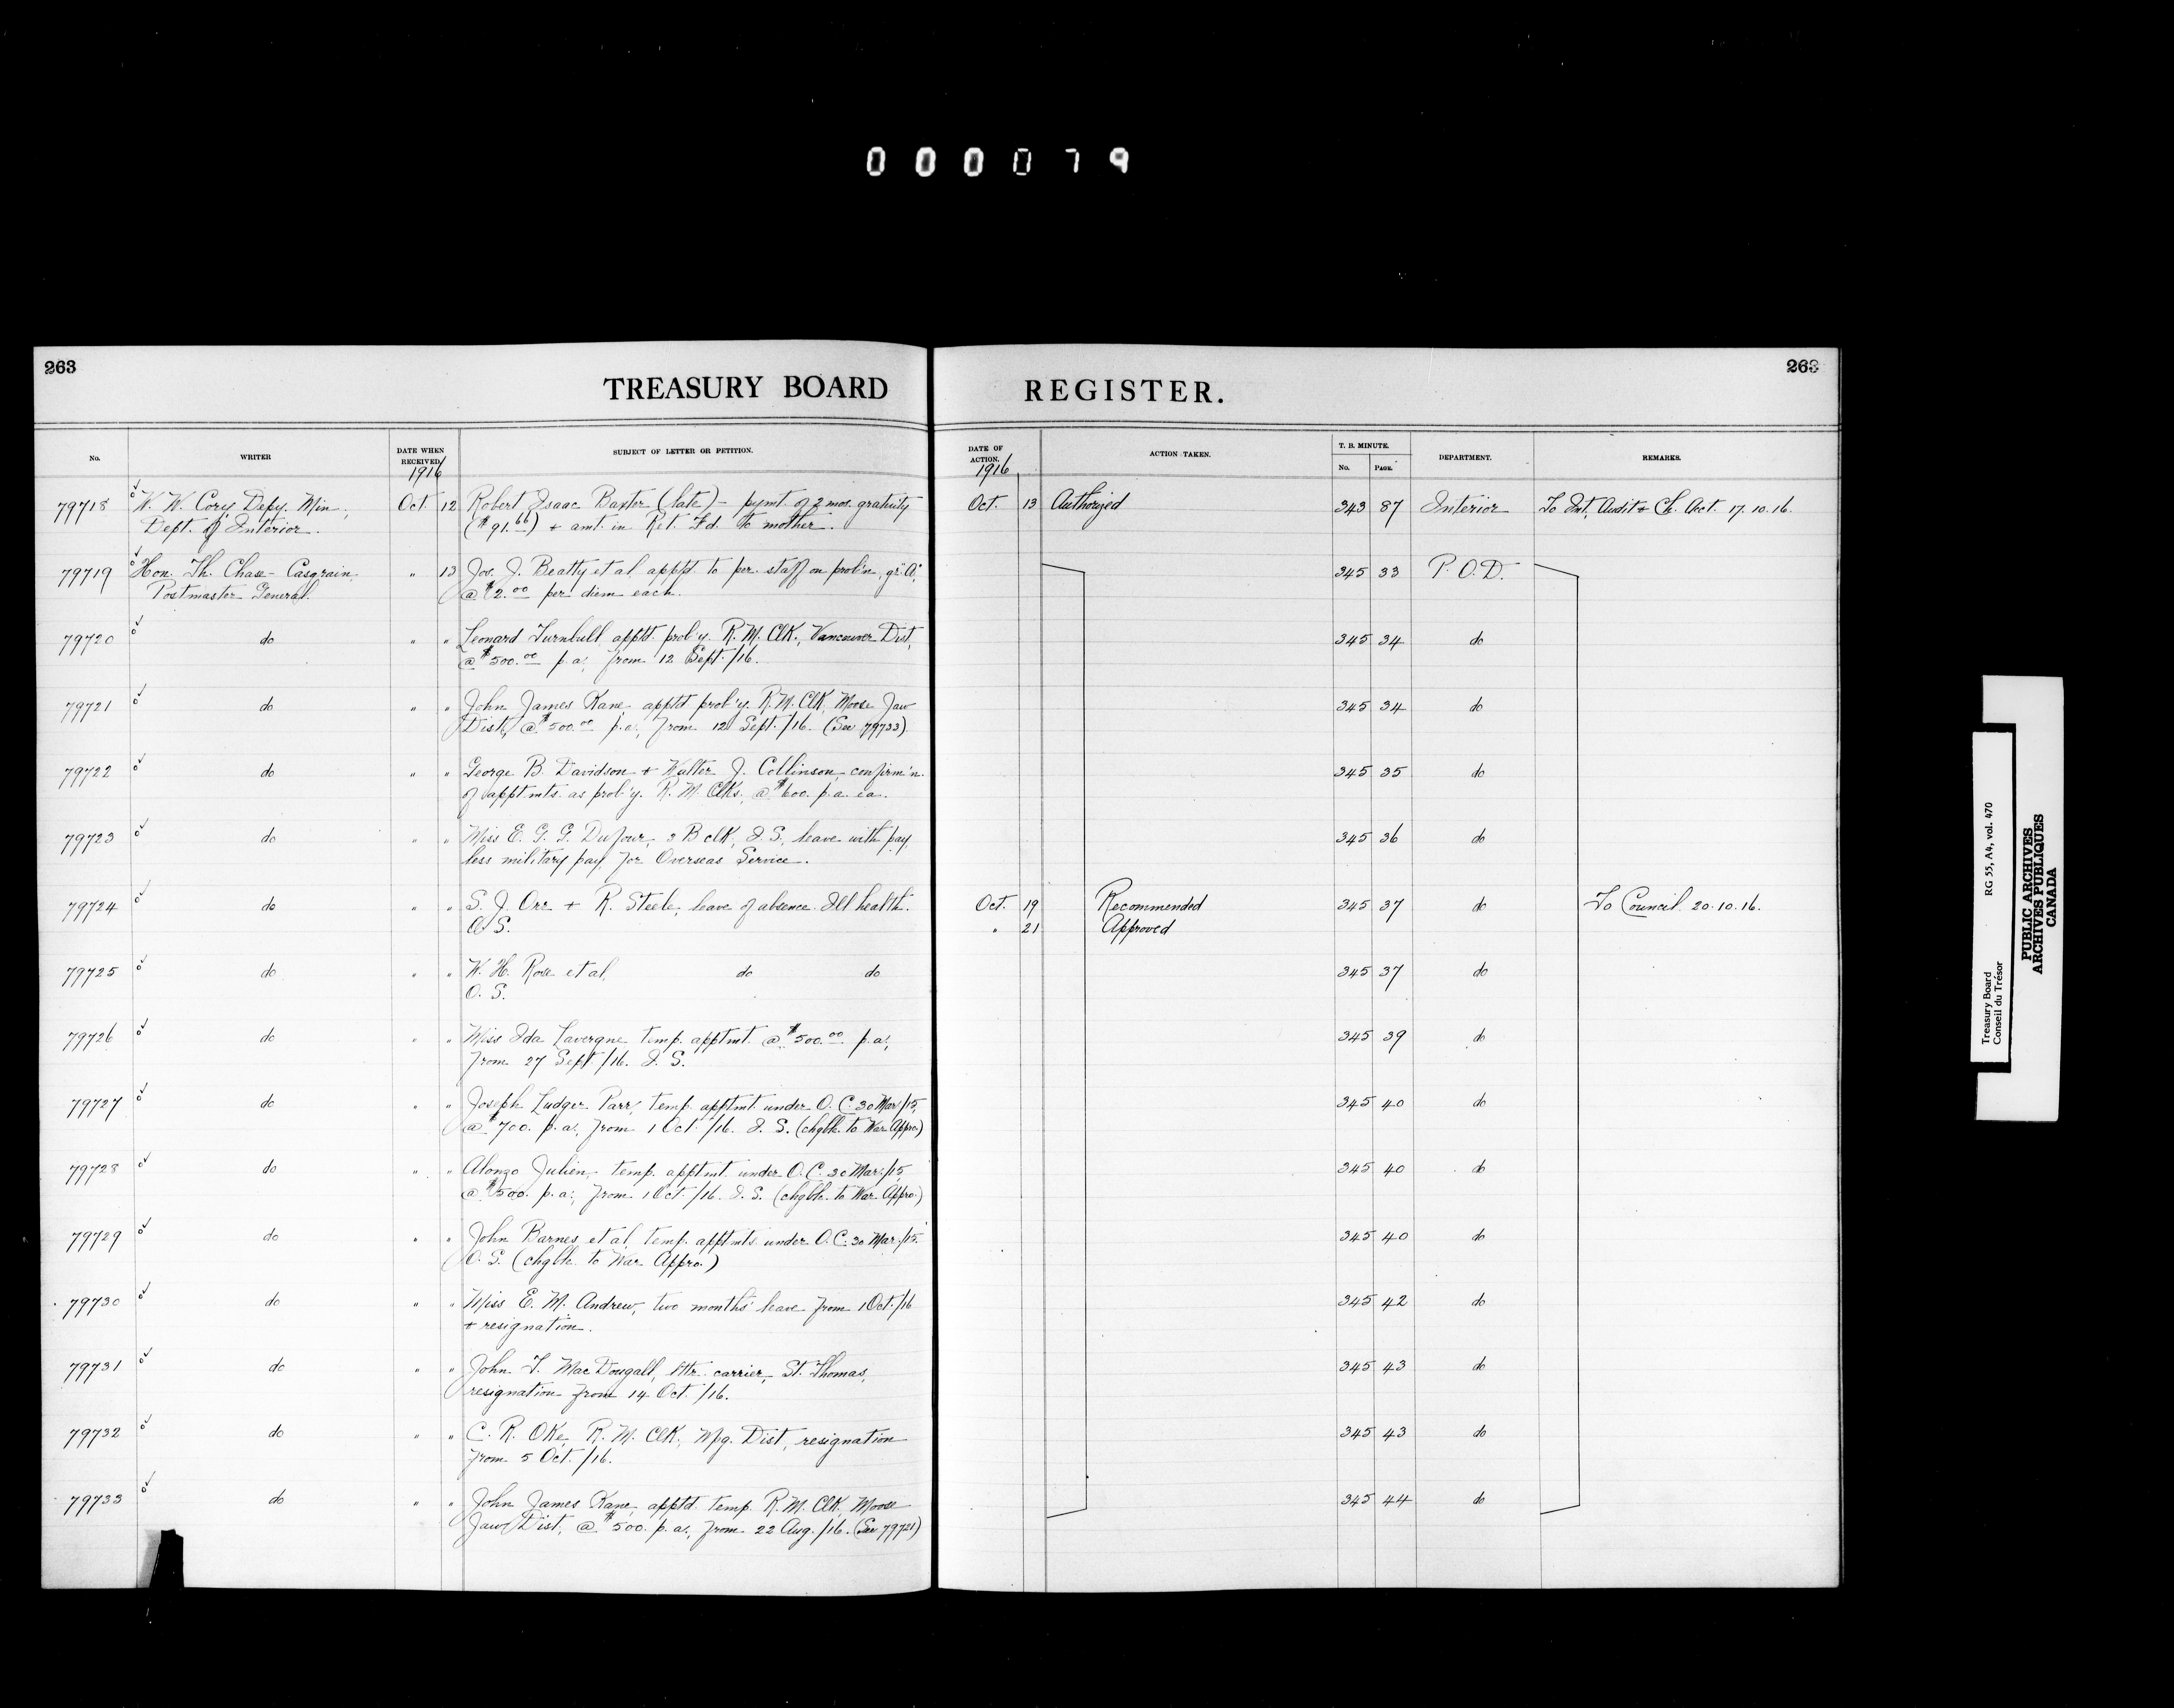 000079
263
TREASURY BOARD REGISTER.
263
No. WRITER DATE WHEN RECEIVED SUBJECT OF LETTER OR PETITION. DATE OF ACTION. ACTION TAKEN. T. B. MINUTE. No. PAGE. DEPARTMENT. REMARKS.
1916 1916
79718 W. W. Cory, Depy. Min., Oct. 12 Robert Isaac Baxter (late) - pymt. of 2 mos. gratuity Oct. 13 Authorized 343 87 Interior To Int., Audit & Ch. Act. 17.10.16.
Dept. of Interior. ($91.66) + amt. in Ret. Fd. to mother.
79719 Hon. Th. Chase-Casgrain, " 13 Jos. J. Beatty et al, apptd. to per. staff on prob'n., gr. "A", 345 33 P. O. D.
Postmaster General. @ $2.00 per diem each.
79720 do " " Leonard Turnbull apptd. prob'y. R. M. Clk., Vancouver Dist., 345 34 do
@ $500.00 p.a., from 12 Sept./16.
79721 do " " John James Kane, apptd prob'y. R. M. Clk, Moose Jaw 345 34 do
Dist., @ $500.00 p.a., from 12 Sept./16. (See 79733)
79722 do " " George B. Davidson + Walter J. Collinson, confirm'n. 345 35 do
of apptmts. as prob'y. R. M. Clks., @ $600. p.a. ea.
79723 do " " Miss E. G. G. Dufour, 3 B clk, I. S., leave with pay, 345 36 do
less military pay, for Overseas Service.
79724 do " " S. J. Orr + R. Steele, leave of absence. Ill health. Oct. 19 Recommended 345 37 do To Council 20.10.16.
O. S. " 21 Approved
79725 do " " W. H. Rose et al, do do 345 37 do
O. S.
79726 do " " Miss Ida Lavergne temp. apptmt. @ $500.00 p.a., 345 39 do
from 27 Sept/16. I. S.
79727 do " " Joseph Ludger Parr, temp. apptmt. under O. C. 30 Mar/15, 345 40 do
@ $700. p.a., from 1 Oct./16. I. S. (chgble. to War Appro.)
79728 do " " Alonzo Julien, temp. apptmt. under O. C. 30 Mar./15, 345 40 do
@ $500. p.a., from 1 Oct./16. I. S. (chgble. to War Appro.)
79729 do " " John Barnes, et al, temp. apptmts. under O. C. 30 Mar./15. 345 40 do
O. S. (chgble. to War Appro.)
79730 do " " Miss E. M. Andrew, two months' leave from 1 Oct./16 345 42 do
+ resignation.
79731 do " " John T. MacDougall, lttr. carrier, St. Thomas, 345 43 do
resignation from 14 Oct./16.
79732 do " " C. R. Oke, R. M. Clk., Wpg. Dist., resignation 345 43 do
from 5 Oct./16.
79733 do " " John James Kane, apptd. temp. R. M. Clk, Moose 345 44 do
Jaw Dist., @ $500. p.a., from 22 Aug./16. (See 79721)
Treasury Board RG 55, A4, vol. 470
Conseil du Trésor
PUBLIC ARCHIVES
ARCHIVES PUBLIQUES
CANADA